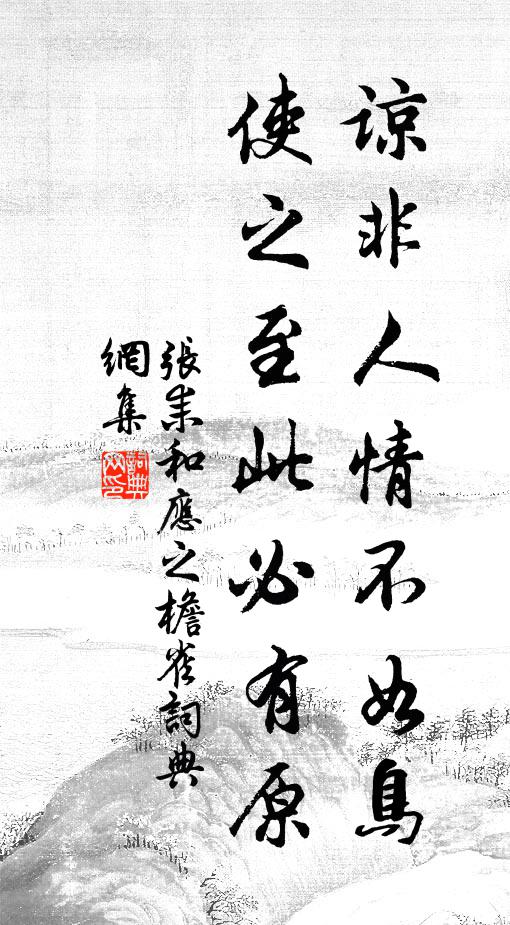 諒非人情不如鳥
使之至此必有原
張耒和應之檐雀詞典
網集
詞典網印